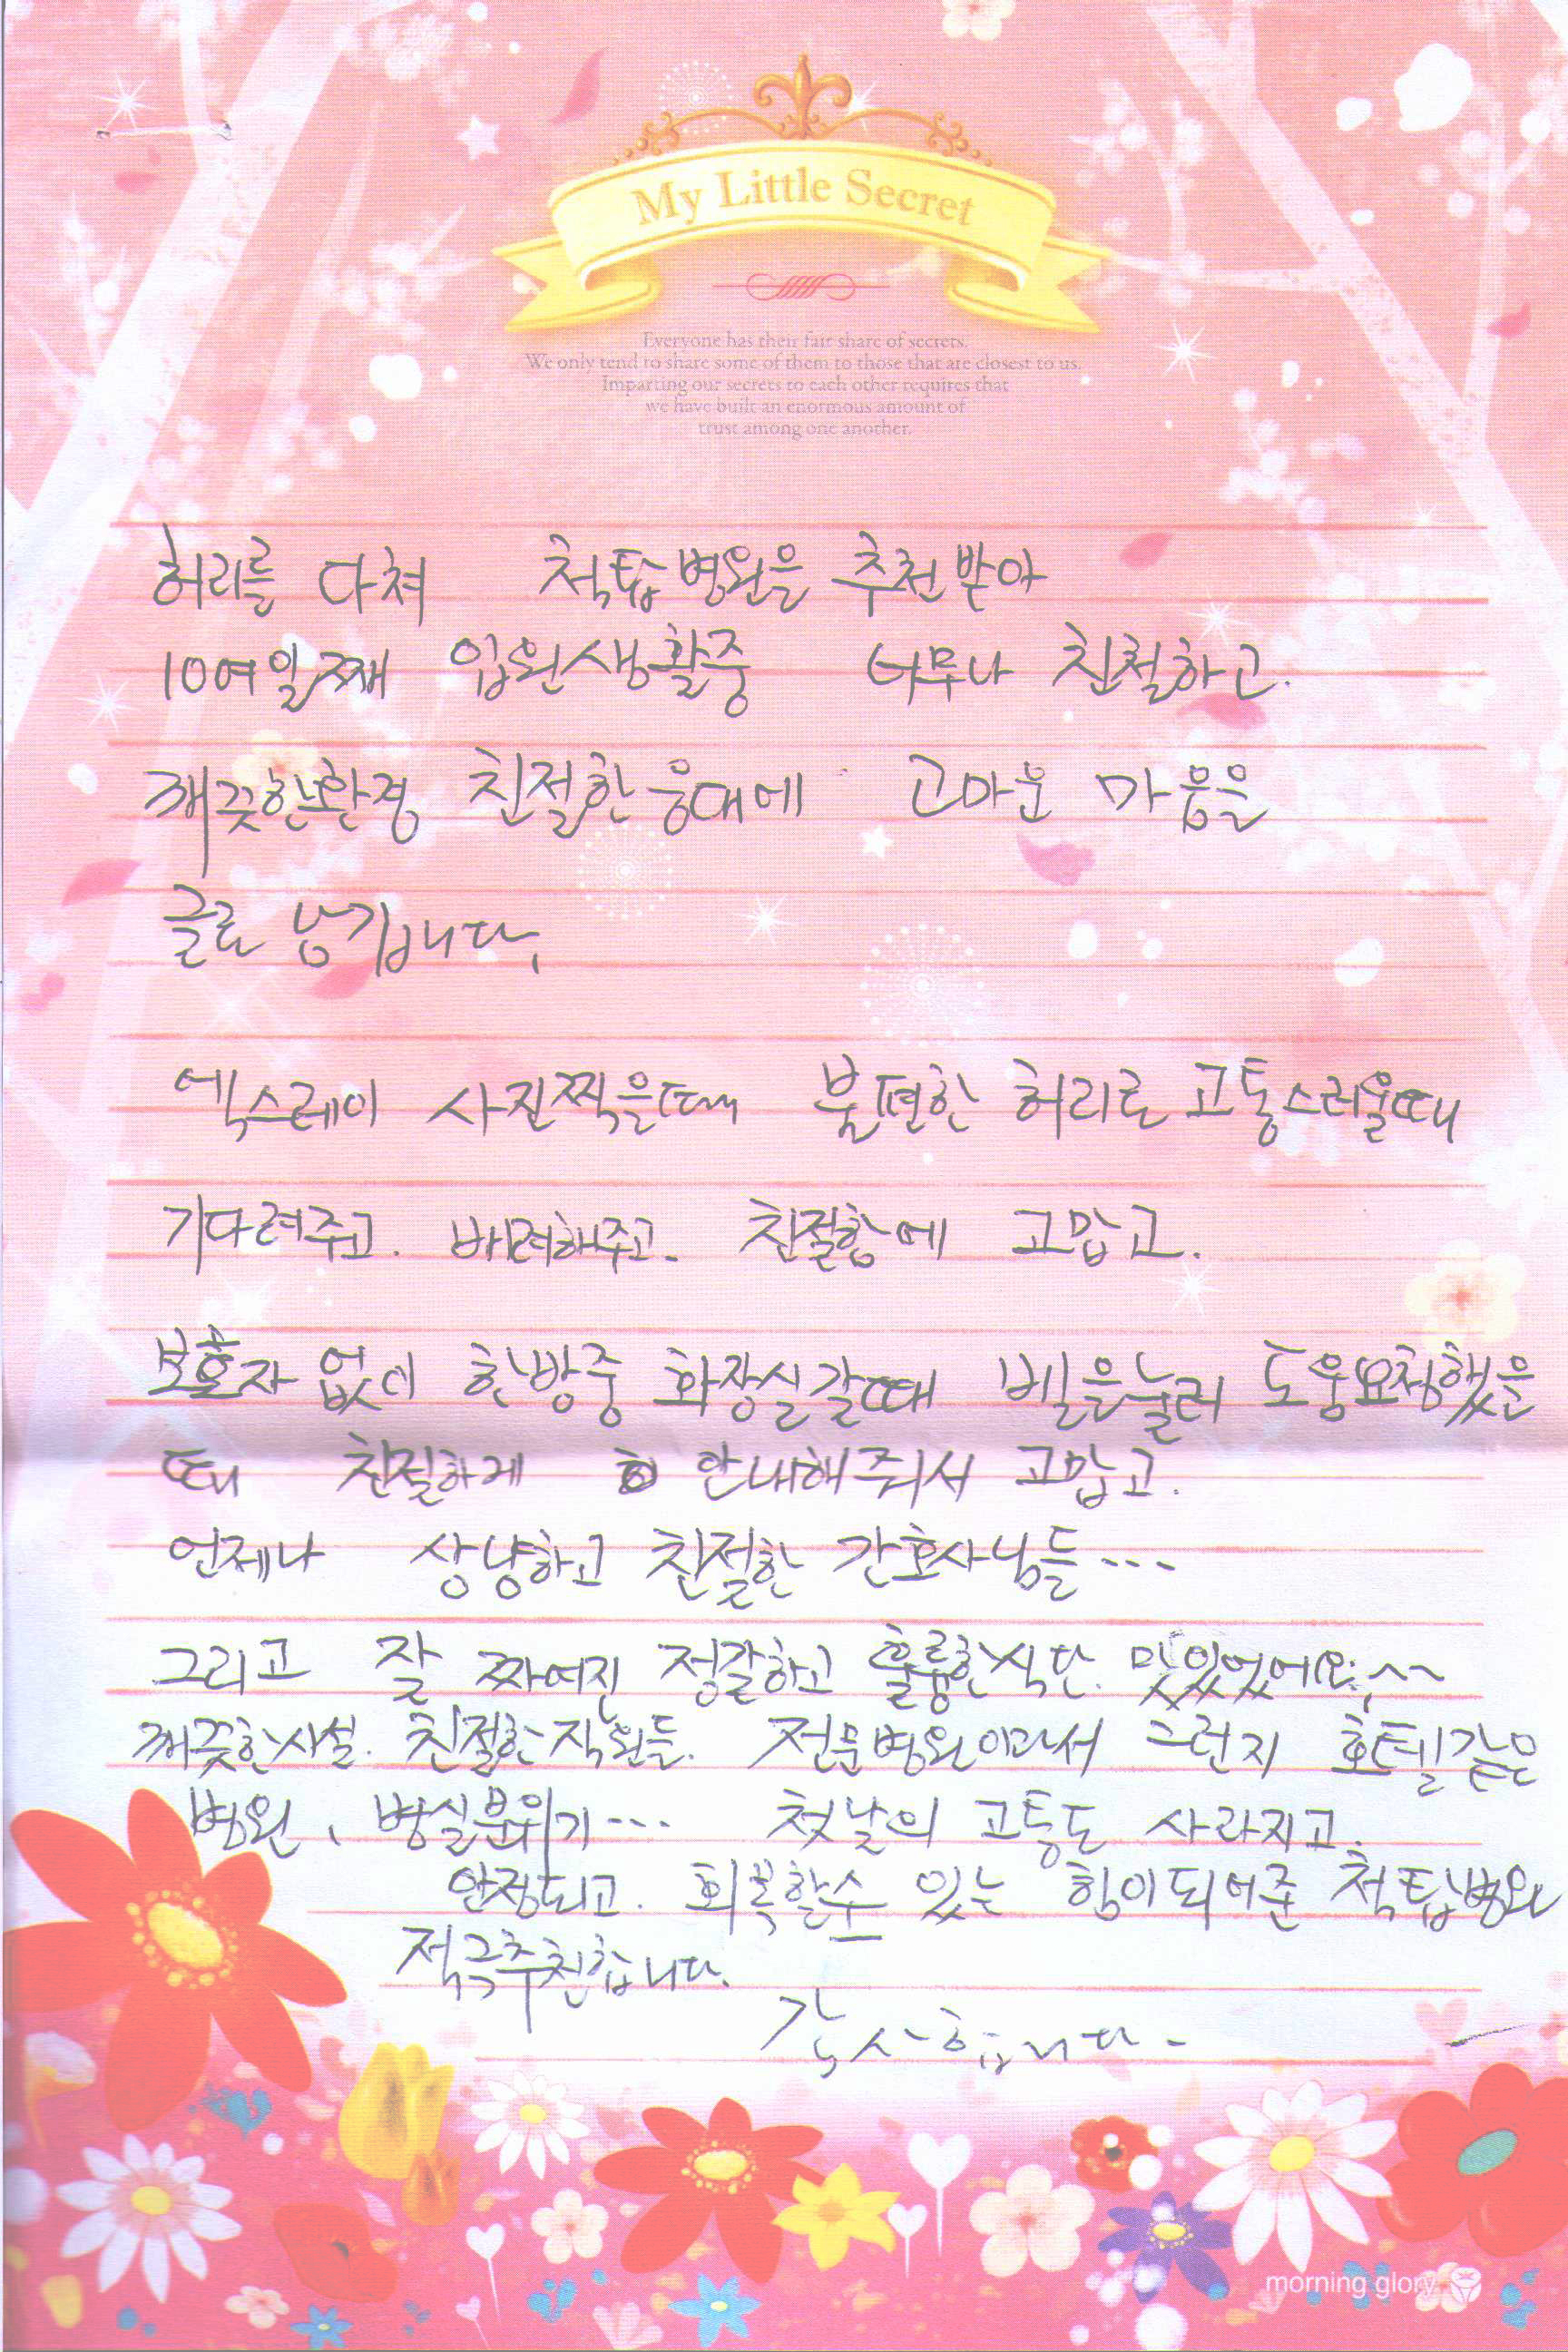 My Little Secret
Everyone has their fair share of secrets.
We only tend to share some of them to those that are closest to us.
Imparting our secrets to each other requires that
we have built an enormous amount of
trust among one another.
허리를 다쳐 척탑병원을 추천받아
10여일째 입원생활중 너무나 친절하고.
깨끗한환경 친절한응대에 고마운 마음을
글로 남깁니다.
엑스레이 사진찍을때 불편한 허리로 고통스러울때
기다려주고. 배려해주고. 친절함에 고맙고.
보호자 없이 한밤중 화장실갈때 벨을눌러 도움요청했을
때 친절하게 안내해주셔서 고맙고.
언제나 상냥하고 친절한 간호사님들...
그리고 잘 짜여진 정갈하고 훌륭한식단. 맛있었어요.^^
깨끗한시설. 친절한직원들. 전문병원이라서 그런지 호텔같은
병원, 병실분위기... 첫날의 고통도 사라지고.
안정되고. 회복할수 있는 힘이되어준 척탑병원
적극추천합니다.
감사합니다.
morning glory